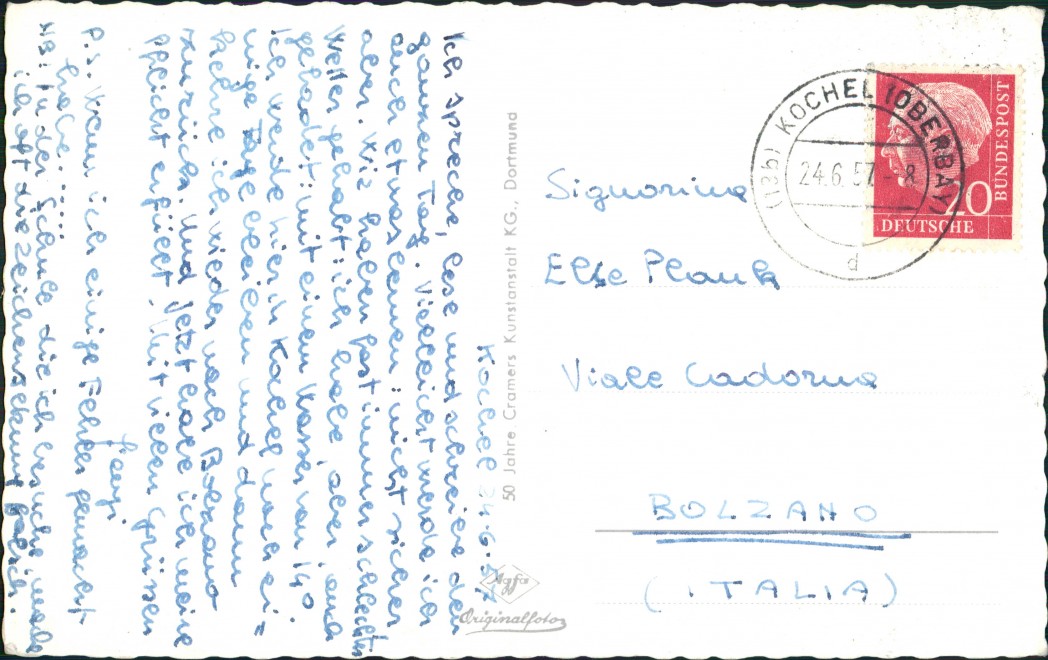 Kochel 24.6.57
Ich spreche, lese und schreibe den
ganzen Tag. Vielleicht werde ich
auch etwas lernen; nicht sicher
aber. Wir haben fast immer schlechtes
Wetter gehabt; ich habe, aber, auch
gebadet: mit einem Wasser von 14°
Ich werde hier in Kochel noch ei=
nige Tage bleiben und dann
kehre ich wieder nach Bolzano
zurück. Und jetzt habe ich meine
Pflicht erfüllt. Mit vielen Grüssen
P.S. Wenn ich einige Fehler gemacht
habe.....
NB: In der Schule die ich besuche
ich oft die Zeichensekunst
50 Jahre Cramers Kunstanstalt KG., Dortmund
Agfa
Originalfoto
Signorina
Else Plank
Viale Cadorna
BOLZANO
(ITALIA)
(13b) KOCHEL (OBERBAY)
24.6.57.-8
d
20
DEUTSCHE
BUNDESPOST